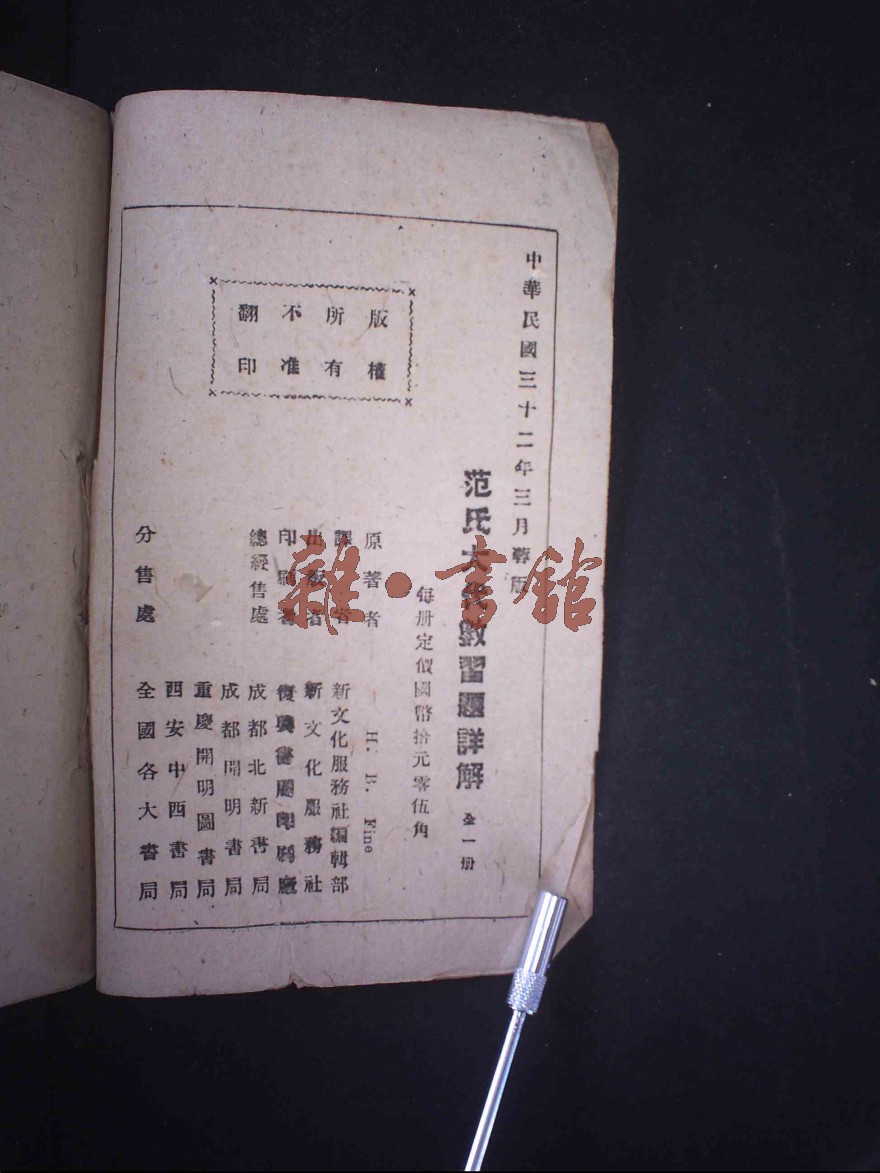 中華民國三十二年三月蓉版
范氏大代數習題詳解 全一册
每册定價國幣拾元零伍角
版權
所有
不准
翻印
原著者 H. B. Fine
譯者 新文化服務社編輯部
出版者 新文化服務社
印刷者 復興書局印刷廠
總經售處 成都北新書局
成都開明書局
重慶開明圖書局
西安中西書局
分售處 全國各大書局
雜·書館